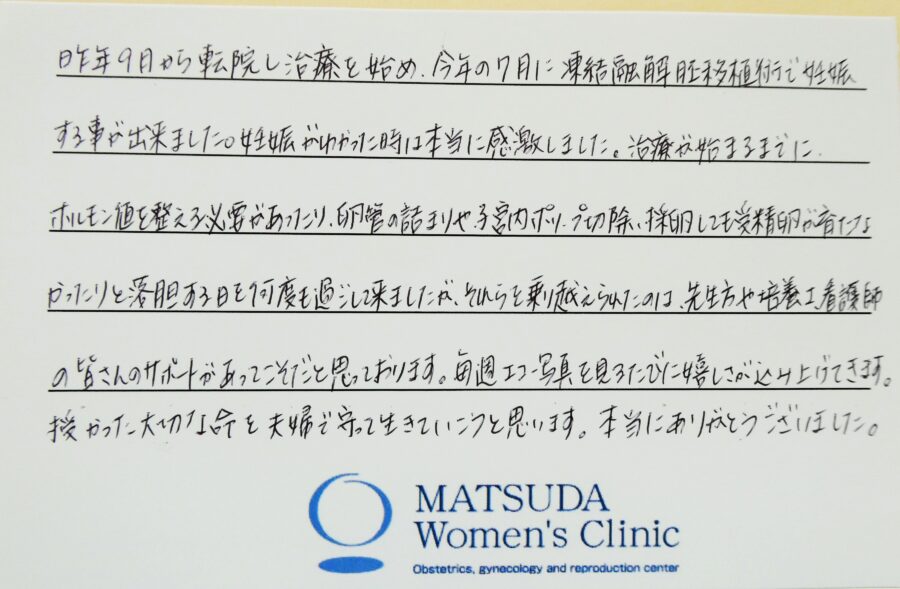 昨年9月から転院し治療を始め、今年の7月に凍結融解胚移植術で妊娠
する事が出来ました。妊娠がわかった時は本当に感激しました。治療が始まるまでに、
ホルモン値を整える必要があったり、卵管の詰まりや子宮内ポリープ切除、採卵しても受精卵が育たな
かったりと落胆する日を何度も過ごして来ましたが、それらを乗り越えられたのは、先生方や培養士、看護師
の皆さんのサポートがあってこそだと思っております。毎週エコー写真を見るたびに嬉しさが込み上げてきます。
授かった大切な命を夫婦で守って生きていこうと思います。本当にありがとうございました。
MATSUDA
Women's Clinic
Obstetrics, gynecology and reproduction center